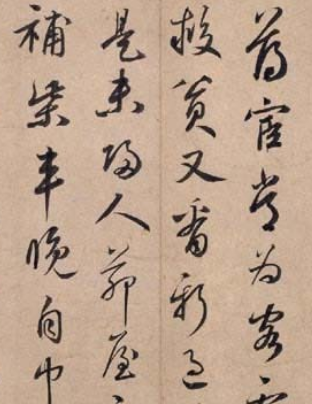 薄宦常為客
救貧又看新過
是未歸人茅屋
補柴車晚自巾